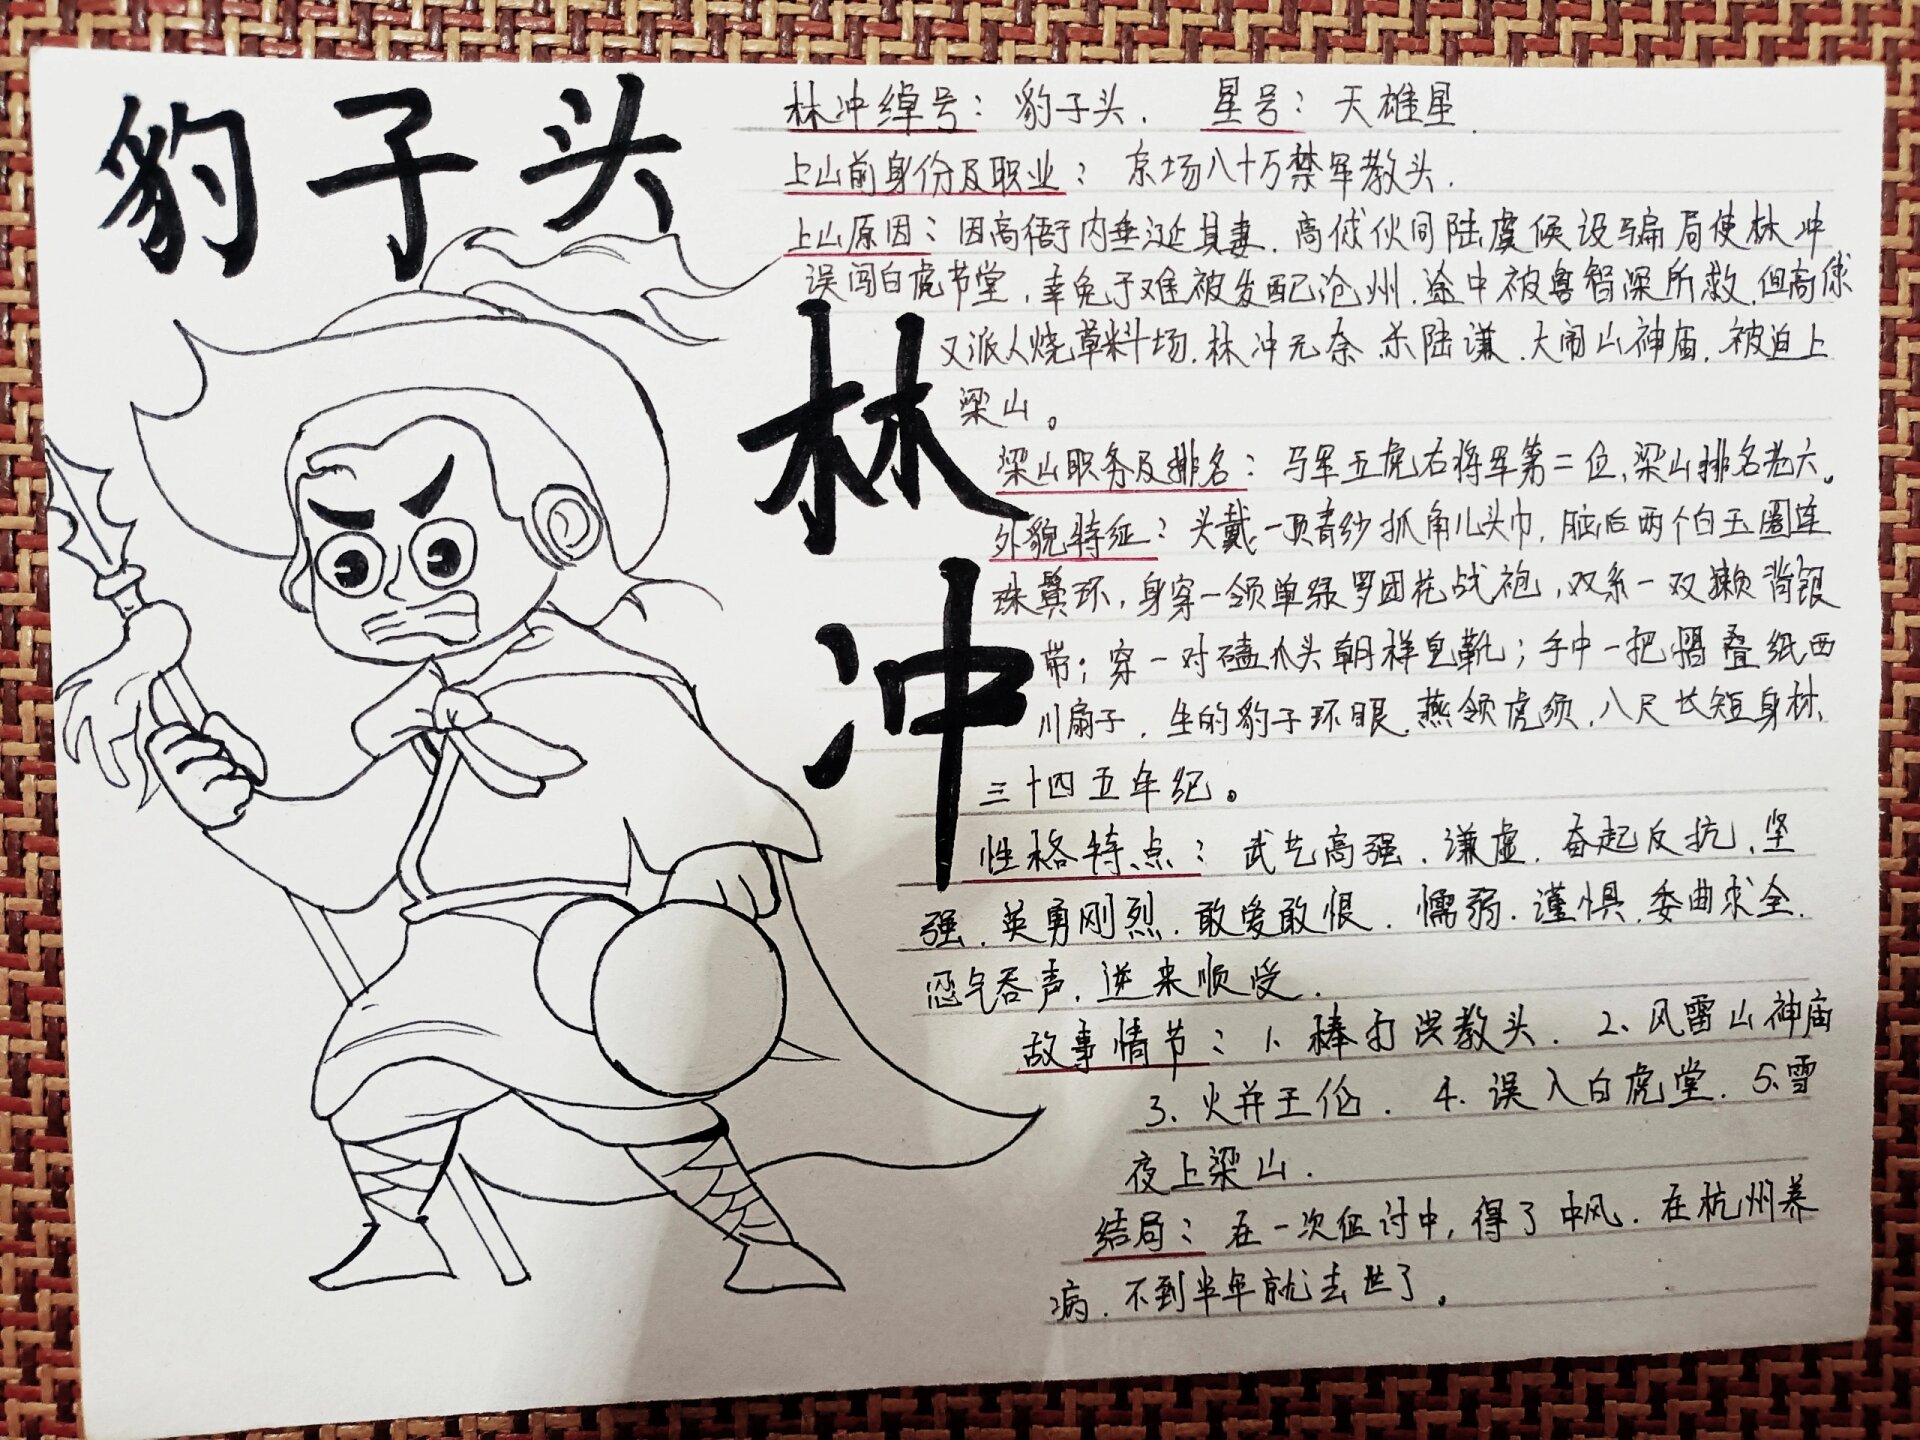 豹子头
林冲
林冲绰号：豹子头．星号：天雄星．
上山前身份及职业：京场八十万禁军教头．
上山原因：因高衙内垂涎其妻．高俅伙同陆虞候设骗局使林冲
误闯白虎节堂，幸免于难被发配沧州．途中被鲁智深所救．但高俅
又派人烧草料场．林冲无奈杀陆谦．大闹山神庙．被迫上
梁山。
梁山职务及排名：马军五虎右将军第二位，梁山排名老六。
外貌特征：头戴一顶青纱抓角儿头巾，脑后两个白玉圈连
珠鬓环，身穿一领单绿罗团花战袍，双系一双獭背银
带；穿一对磕爪头朝样皂靴；手中一把摺叠纸西
川扇子．生的豹子环眼．燕领虎须，八尺长短身材、
三十四五年纪。
性格特点：武艺高强．谦虚．奋起反抗、坚
强．英勇刚烈．敢爱敢恨．懦弱．谨惧．委曲求全．
忍气吞声．逆来顺受．
故事情节：1、棒打洪教头．2、风雷山神庙
3、火并王伦．4、误入白虎堂．5、雪
夜上梁山．
结局：在一次征讨中，得了中风．在杭州养
病．不到半年就去世了。